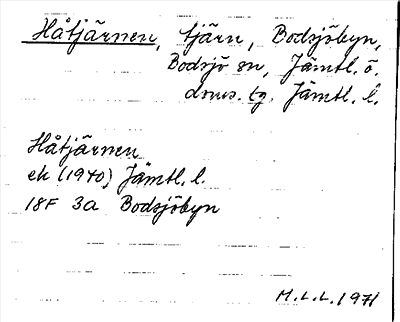 Håtjärnen, tjärn, Bodsjöbyn,
Bodsjö sn, Jämtl. ö.
doms. tg. Jämtl. l.
Håtjärnen
ek (1940) Jämtl. l.
18F 3a Bodsjöbyn
M.L.L. 1971